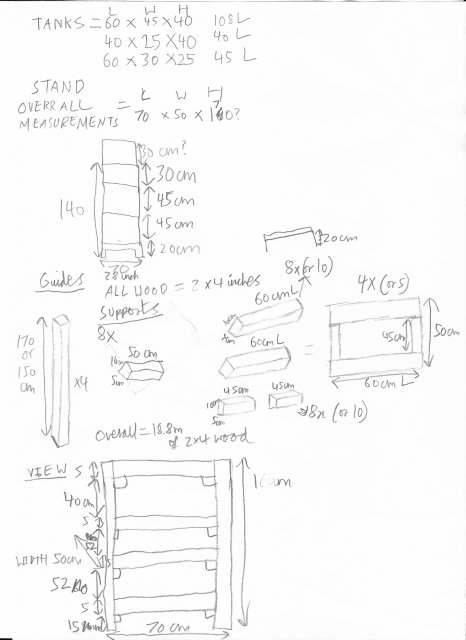 L W H
TANKS = 60 x 45 x 40 108L
40 x 25 x 40 40 L
60 x 30 x 25 45 L
STAND
OVERRALL = L W H
MEASUREMENTS 70 x 50 x 170?
30cm?
30cm
45cm
45cm
20cm
140
28 inch
20cm
Guides
ALL WOOD = 2 x 4 inches
8x (or 10)
4x (or 5)
Supports
8x
60cm L
10cm
5cm
50cm
10cm
5cm
60cm L
=
45cm
50cm
60cm L
170
or
150
cm
x4
45cm 45cm
10cm
5cm
8x (or 10)
Overall = 18.8m
of 2x4 wood
VIEW 5
40cm
5
52
WIDTH 50cm
52
5
15
160cm
70 cm